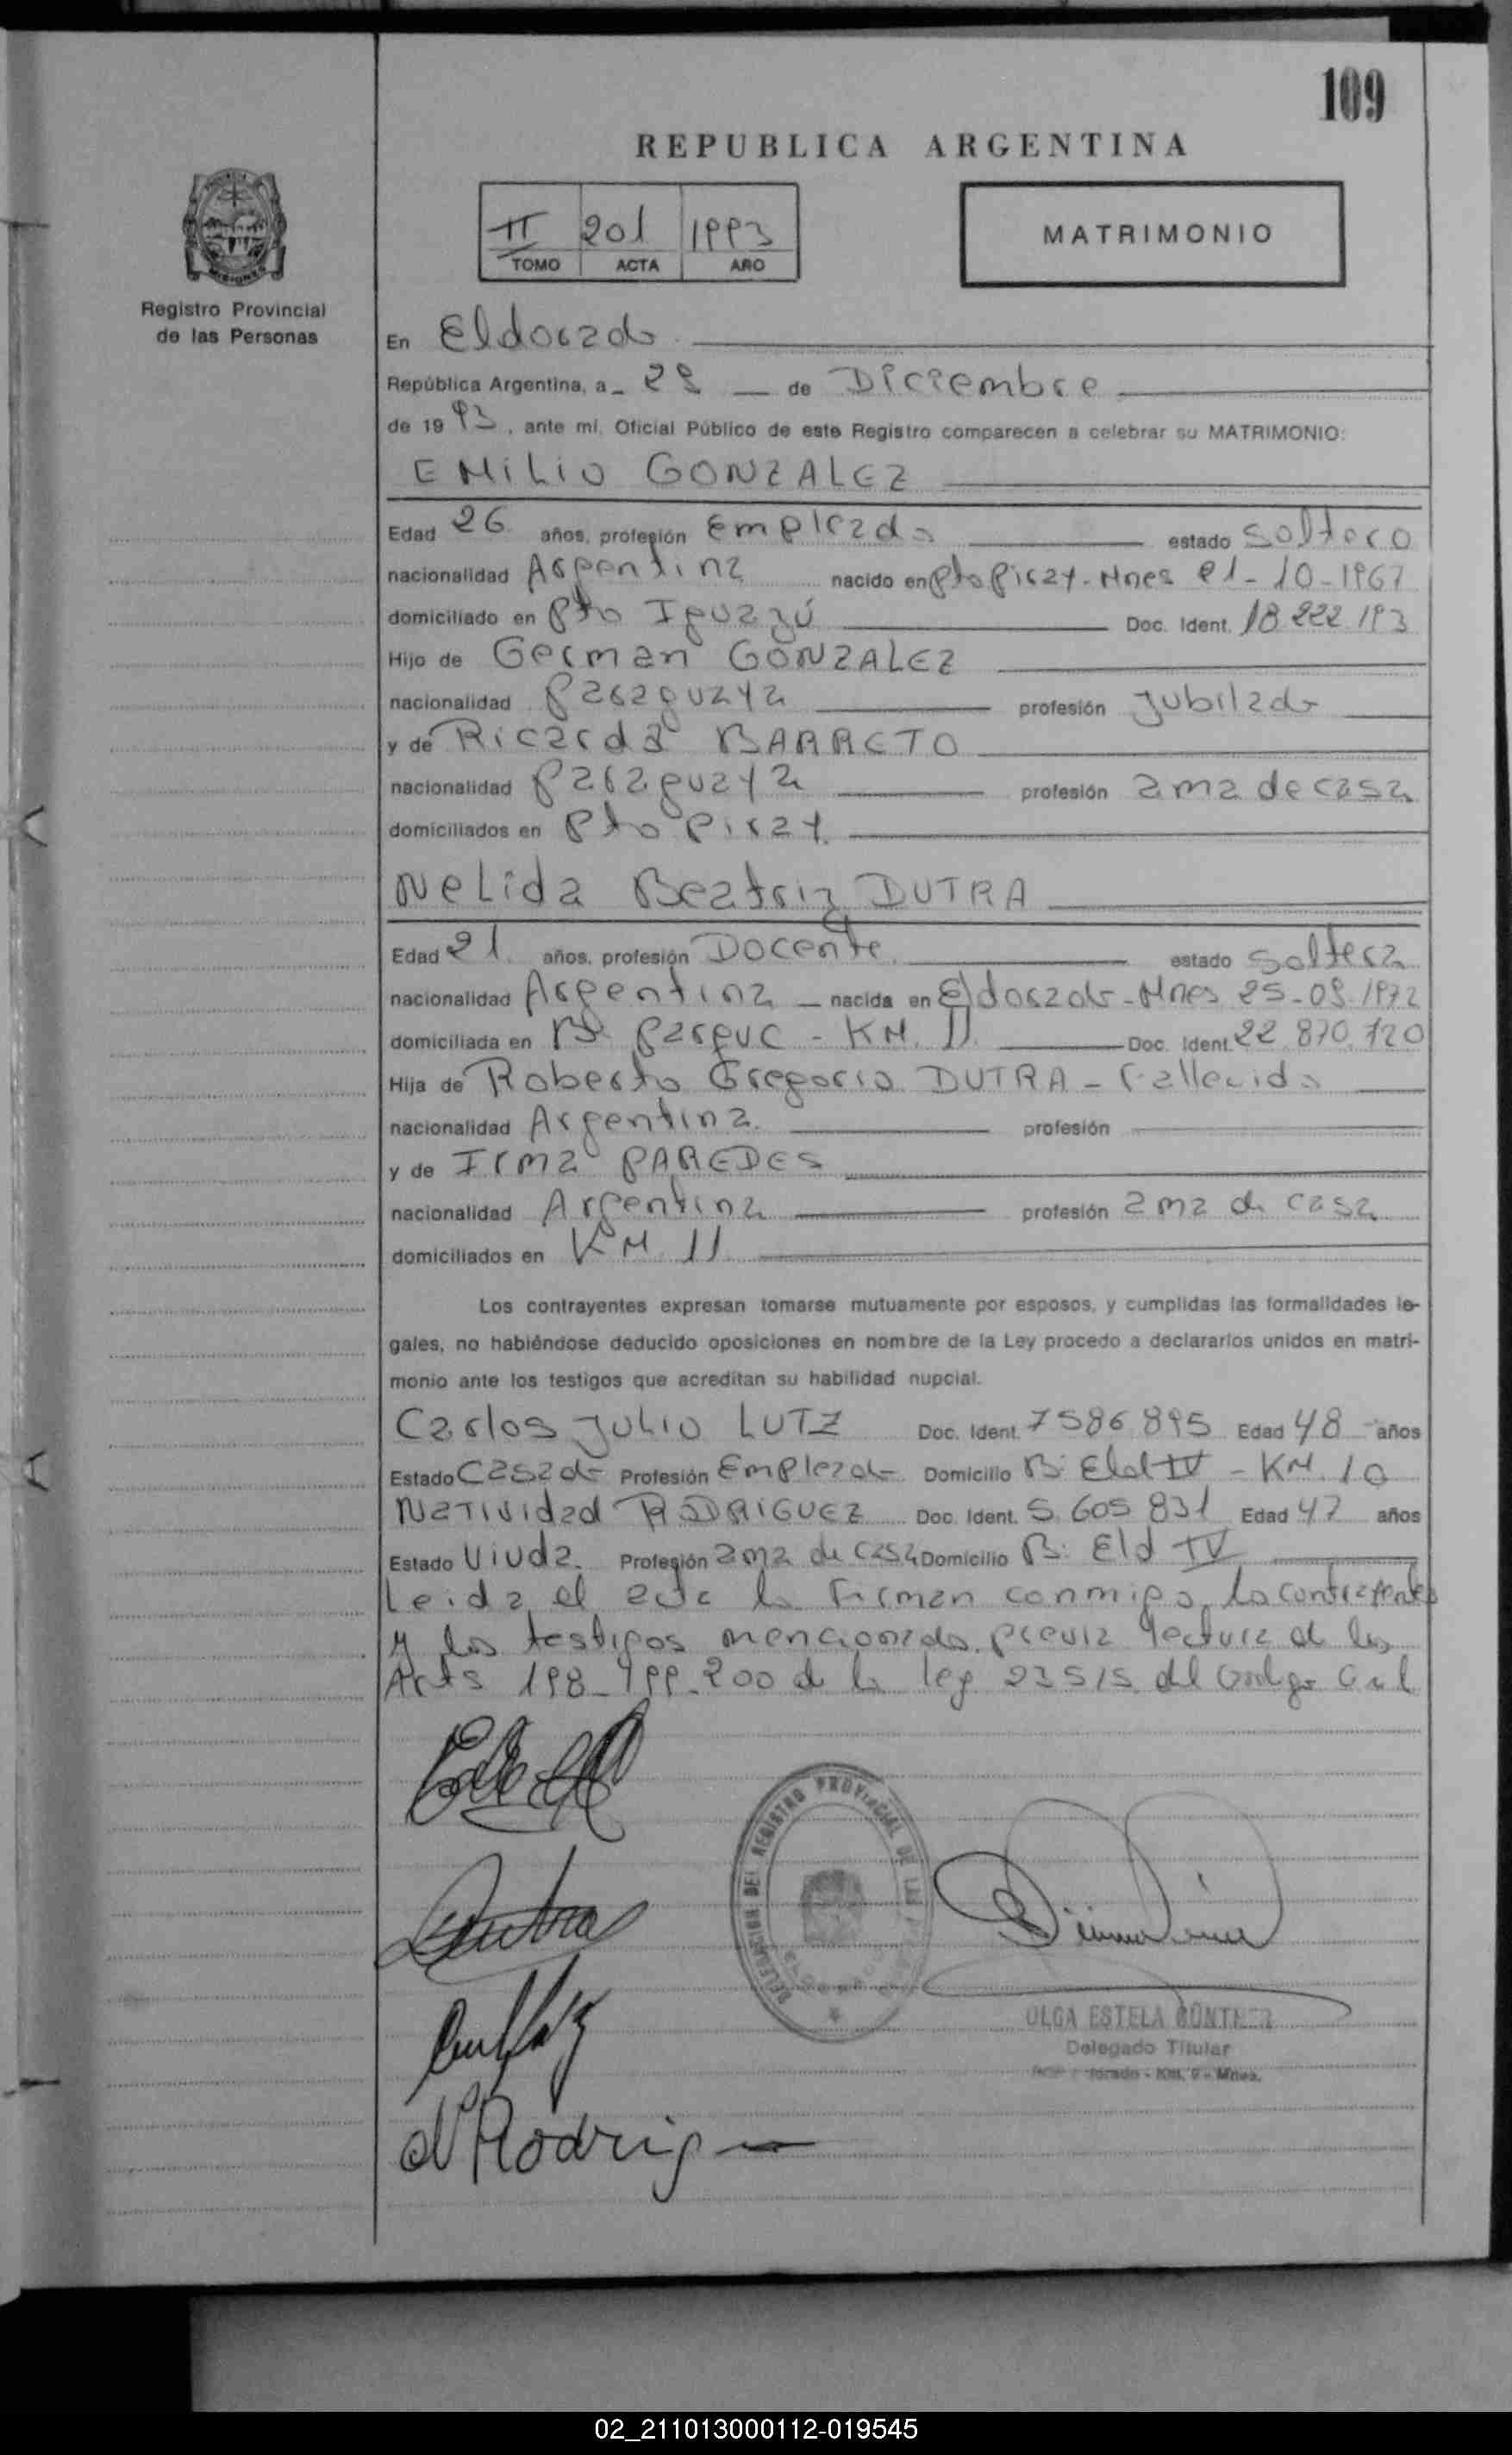 109
REPUBLICA ARGENTINA
II 201 1993
TOMO ACTA AÑO
MATRIMONIO
MISIONES
Registro Provincial
de las Personas
En Eldorado
República Argentina, a - 29 - de Diciembre
de 19 93, ante mí, Oficial Público de este Registro comparecen a celebrar su MATRIMONIO:
EMiLiO GONZALEZ
Edad 26 años, profesión Empleado estado soltero
nacionalidad Argentina nacido en Pto Piray - Mnes 21 - 10 - 1967
domiciliado en Pto Iguazú Doc. Ident. 18 222 193
Hijo de German GONZALEZ
nacionalidad Paraguaya profesión Jubilado
y de Ricarda BARRETO
nacionalidad Paraguaya profesión ama de casa
domiciliados en Pto Piray.
NeLida Beatriz DUTRA
Edad 21 años, profesión Docente. estado Soltera
nacionalidad Argentina - nacida en Eldorado - Mnes 25-09-1972
domiciliada en B° Parque - KM. 11. Doc. Ident. 22.870.720
Hija de Roberto Gregorio DUTRA - Fallecido
nacionalidad Argentina. profesión
y de Irma PAREDES
nacionalidad Argentina profesión ama de casa
domiciliados en KM 11
Los contrayentes expresan tomarse mutuamente por esposos, y cumplidas las formalidades le-
gales, no habiéndose deducido oposiciones en nombre de la Ley procedo a declararlos unidos en matri-
monio ante los testigos que acreditan su habilidad nupcial.
Carlos JuLio LUTZ Doc. Ident. 7586895 Edad 48 años
Estado Casado Profesión Empleado Domicilio B: Eld IV - KM. 10
Natividad RODRiGUEZ Doc. Ident. 5.605.831 Edad 47 años
Estado Viuda. Profesión ama de casa Domicilio B: Eld IV
Leida el acta la Firman conmigo, los contrayentes
y los testigos mencionados. previa lectura de los
Arts 198-199-200 de la ley 23515 del Codigo Civil
Dutra
N Rodrig
DELEGACION DEL REGISTRO PROVINCIAL DE LAS
OLGA ESTELA GÜNTHER
Delegado Titular
Km. 9 - Mnes.
02_211013000112-019545